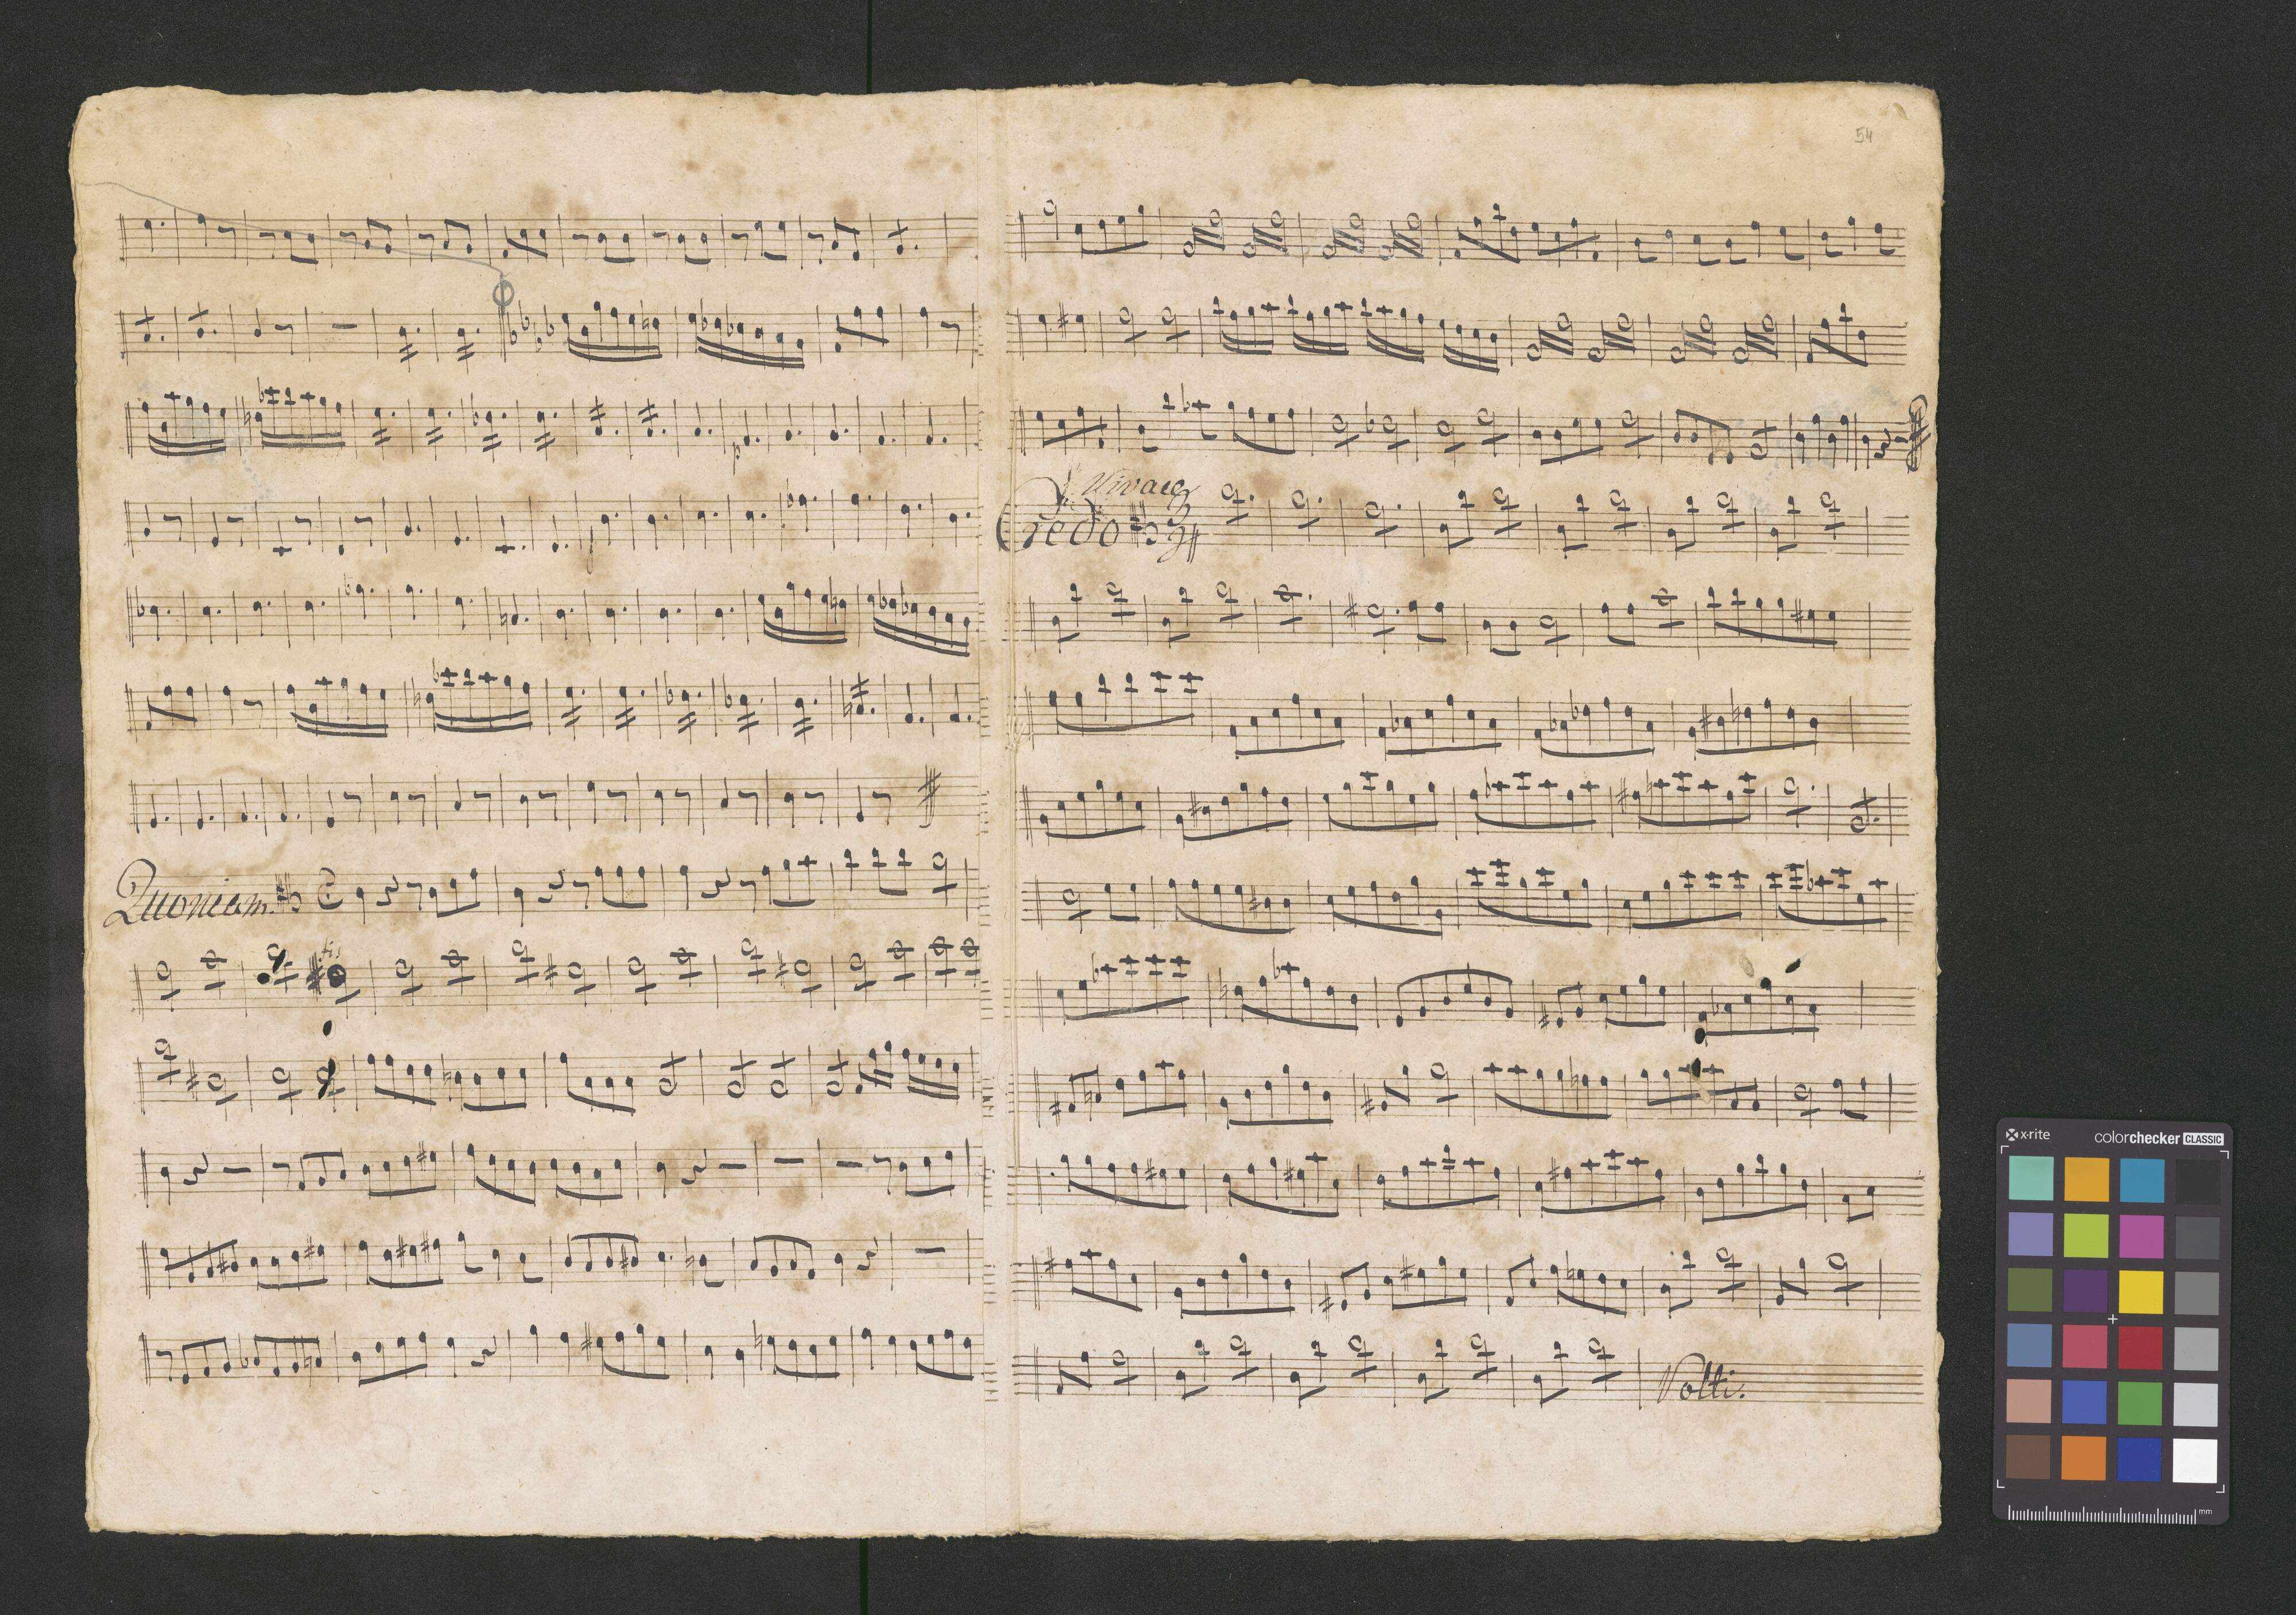 54
p
f
Quoniam.
fis
Vivace
Credo
Volti.
x-rite
colorchecker CLASSIC
mm